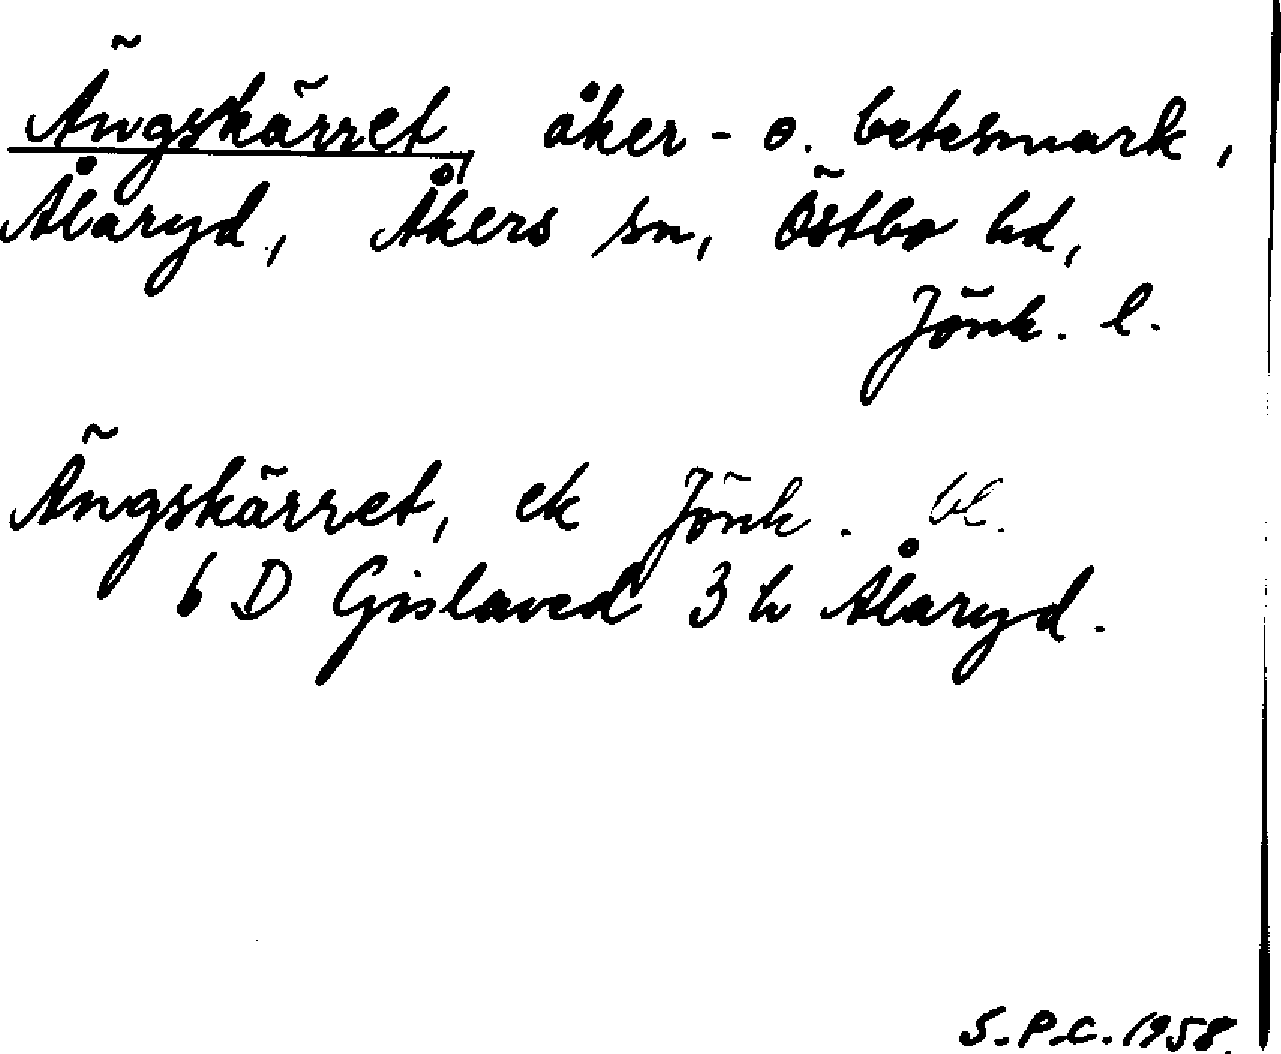 Ängskärret, åker- o. betesmark,
Ålaryd, Åkers sn, Östbo hd,
Jönk. l.
Ängskärret, ek Jönk. bl.
6 D Gislaved 3 h Ålaryd.
S.P.C. 1958.